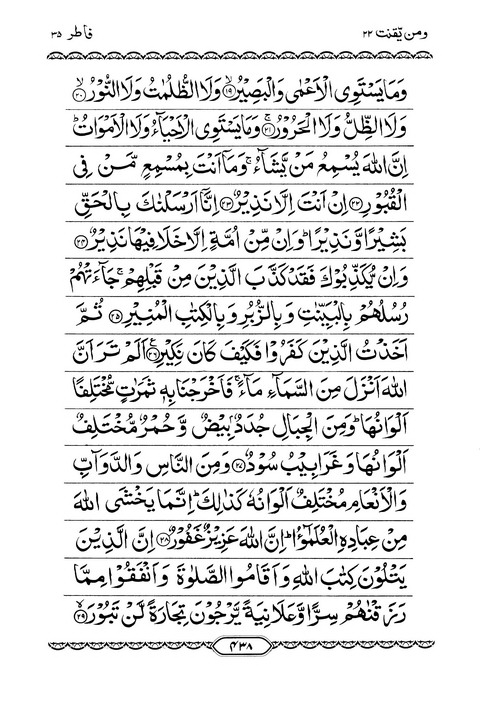 ومن یّقنت ۲۲ فاطر ۳۵
وَمَا يَسْتَوِى الْاَعْمٰى وَالْبَصِيْرُ ۙ‏﴿۱۹﴾ وَلَا الظُّلُمٰتُ وَلَا النُّوْرُ ۙ‏﴿۲۰﴾
وَلَا الظِّلُّ وَلَا الْحَرُوْرُ ۚ‏﴿۲۱﴾ وَمَا يَسْتَوِى الْاَحْيَآءُ وَلَا الْاَمْوَاتُ ؕ
اِنَّ اللّٰهَ يُسْمِعُ مَنْ يَّشَآءُ ۚ وَمَاۤ اَنْتَ بِمُسْمِعٍ مَّنْ فِى
الْقُبُوْرِ ﴿۲۲﴾ اِنْ اَنْتَ اِلَّا نَذِيْرٌ ﴿۲۳﴾ اِنَّاۤ اَرْسَلْنٰكَ بِالْحَقِّ
بَشِيْرًا وَّنَذِيْرًا ؕ وَاِنْ مِّنْ اُمَّةٍ اِلَّا خَلَا فِيْهَا نَذِيْرٌ ﴿۲۴﴾
وَاِنْ يُّكَذِّبُوْكَ فَقَدْ كَذَّبَ الَّذِيْنَ مِنْ قَبْلِهِمْ ۚ جَآءَتْهُمْ
رُسُلُهُمْ بِالْبَيِّنٰتِ وَبِالزُّبُرِ وَبِالْكِتٰبِ الْمُنِيْرِ ﴿۲۵﴾ ثُمَّ
اَخَذْتُ الَّذِيْنَ كَفَرُوْا فَكَيْفَ كَانَ نَكِيْرِ ﴿۲۶﴾ اَلَمْ تَرَ اَنَّ
اللّٰهَ اَنْزَلَ مِنَ السَّمَآءِ مَآءً ۚ فَاَخْرَجْنَا بِهٖ ثَمَرٰتٍ مُّخْتَلِفًا
اَلْوَانُهَا ؕ وَمِنَ الْجِبَالِ جُدَدٌۢ بِيْضٌ وَّحُمْرٌ مُّخْتَلِفٌ
اَلْوَانُهَا وَغَرَابِيْبُ سُوْدٌ ﴿۲۷﴾ وَمِنَ النَّاسِ وَالدَّوَآبِّ
وَالْاَنْعَامِ مُخْتَلِفٌ اَلْوَانُهٗ كَذٰلِكَ ؕ اِنَّمَا يَخْشَى اللّٰهَ
مِنْ عِبَادِهِ الْعُلَمٰٓؤُا ؕ اِنَّ اللّٰهَ عَزِيْزٌ غَفُوْرٌ ﴿۲۸﴾ اِنَّ الَّذِيْنَ
يَتْلُوْنَ كِتٰبَ اللّٰهِ وَاَقَامُوا الصَّلٰوةَ وَاَنْفَقُوْا مِمَّا
رَزَقْنٰهُمْ سِرًّا وَّعَلَانِيَةً يَّرْجُوْنَ تِجَارَةً لَّنْ تَبُوْرَ ۙ‏﴿۲۹﴾
۴۳۸